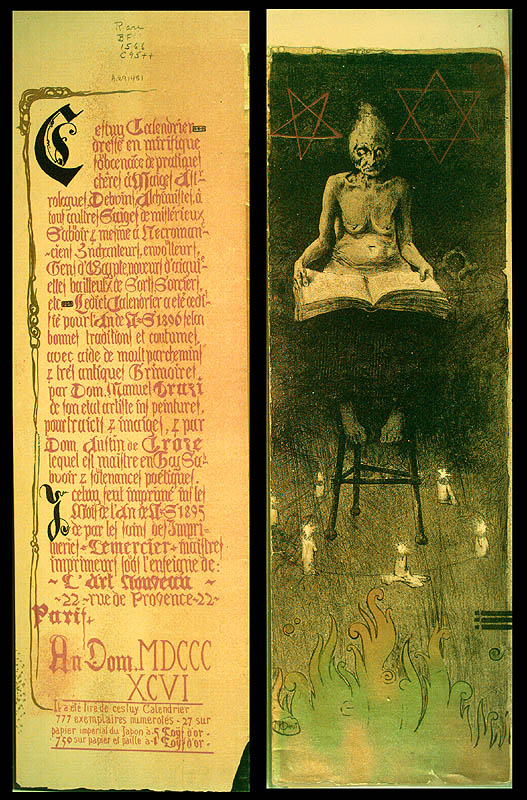 Rare
BF
1566
C95++
Cestuy Calendrier
dressé en mirifique
de pratiques
chères à Mages Ast-
rologues, Devins, Alchimistes, à
tout aultres Sages de mistérieux
Savoir & mesme à Necroman-
ciens, Enchanteurs, envoulteurs,
Gens d'Egypte noueurs d'aiguil-
ettes, bailleurs de Sorts, Sorciers,
etc. Ledict Calendrier a eté oedi-
fié pour l'An de N-S 1896 selon
bonnes traditions et coutumes,
avec aide de moult parchemins
& tres antiques Grimoires,
par Dom. Manuel Orazi
de son etat artiste ins peintures,
pourtraicts & imaiges, & par
Dom Austin de Croze
lequel est maistre en Gay Sa-
voir & solenances poétiques.
Yceluy feut imprimé ins les
Mois de l'An de N-S 1895
de par les soins des Impri-
meries - Lemercier - maistres
imprimeurs sous l'enseigne de:
~ L'Art Nouveau ~
~ 22 - rue de Provence - 22 ~
Paris.
An Dom. MDCCC
XCVI
Il a été tiré de cestuy Calendrier
777 exemplaires numerotés - 27 sur
papier impérial du Japon à
750 sur papier et paille à